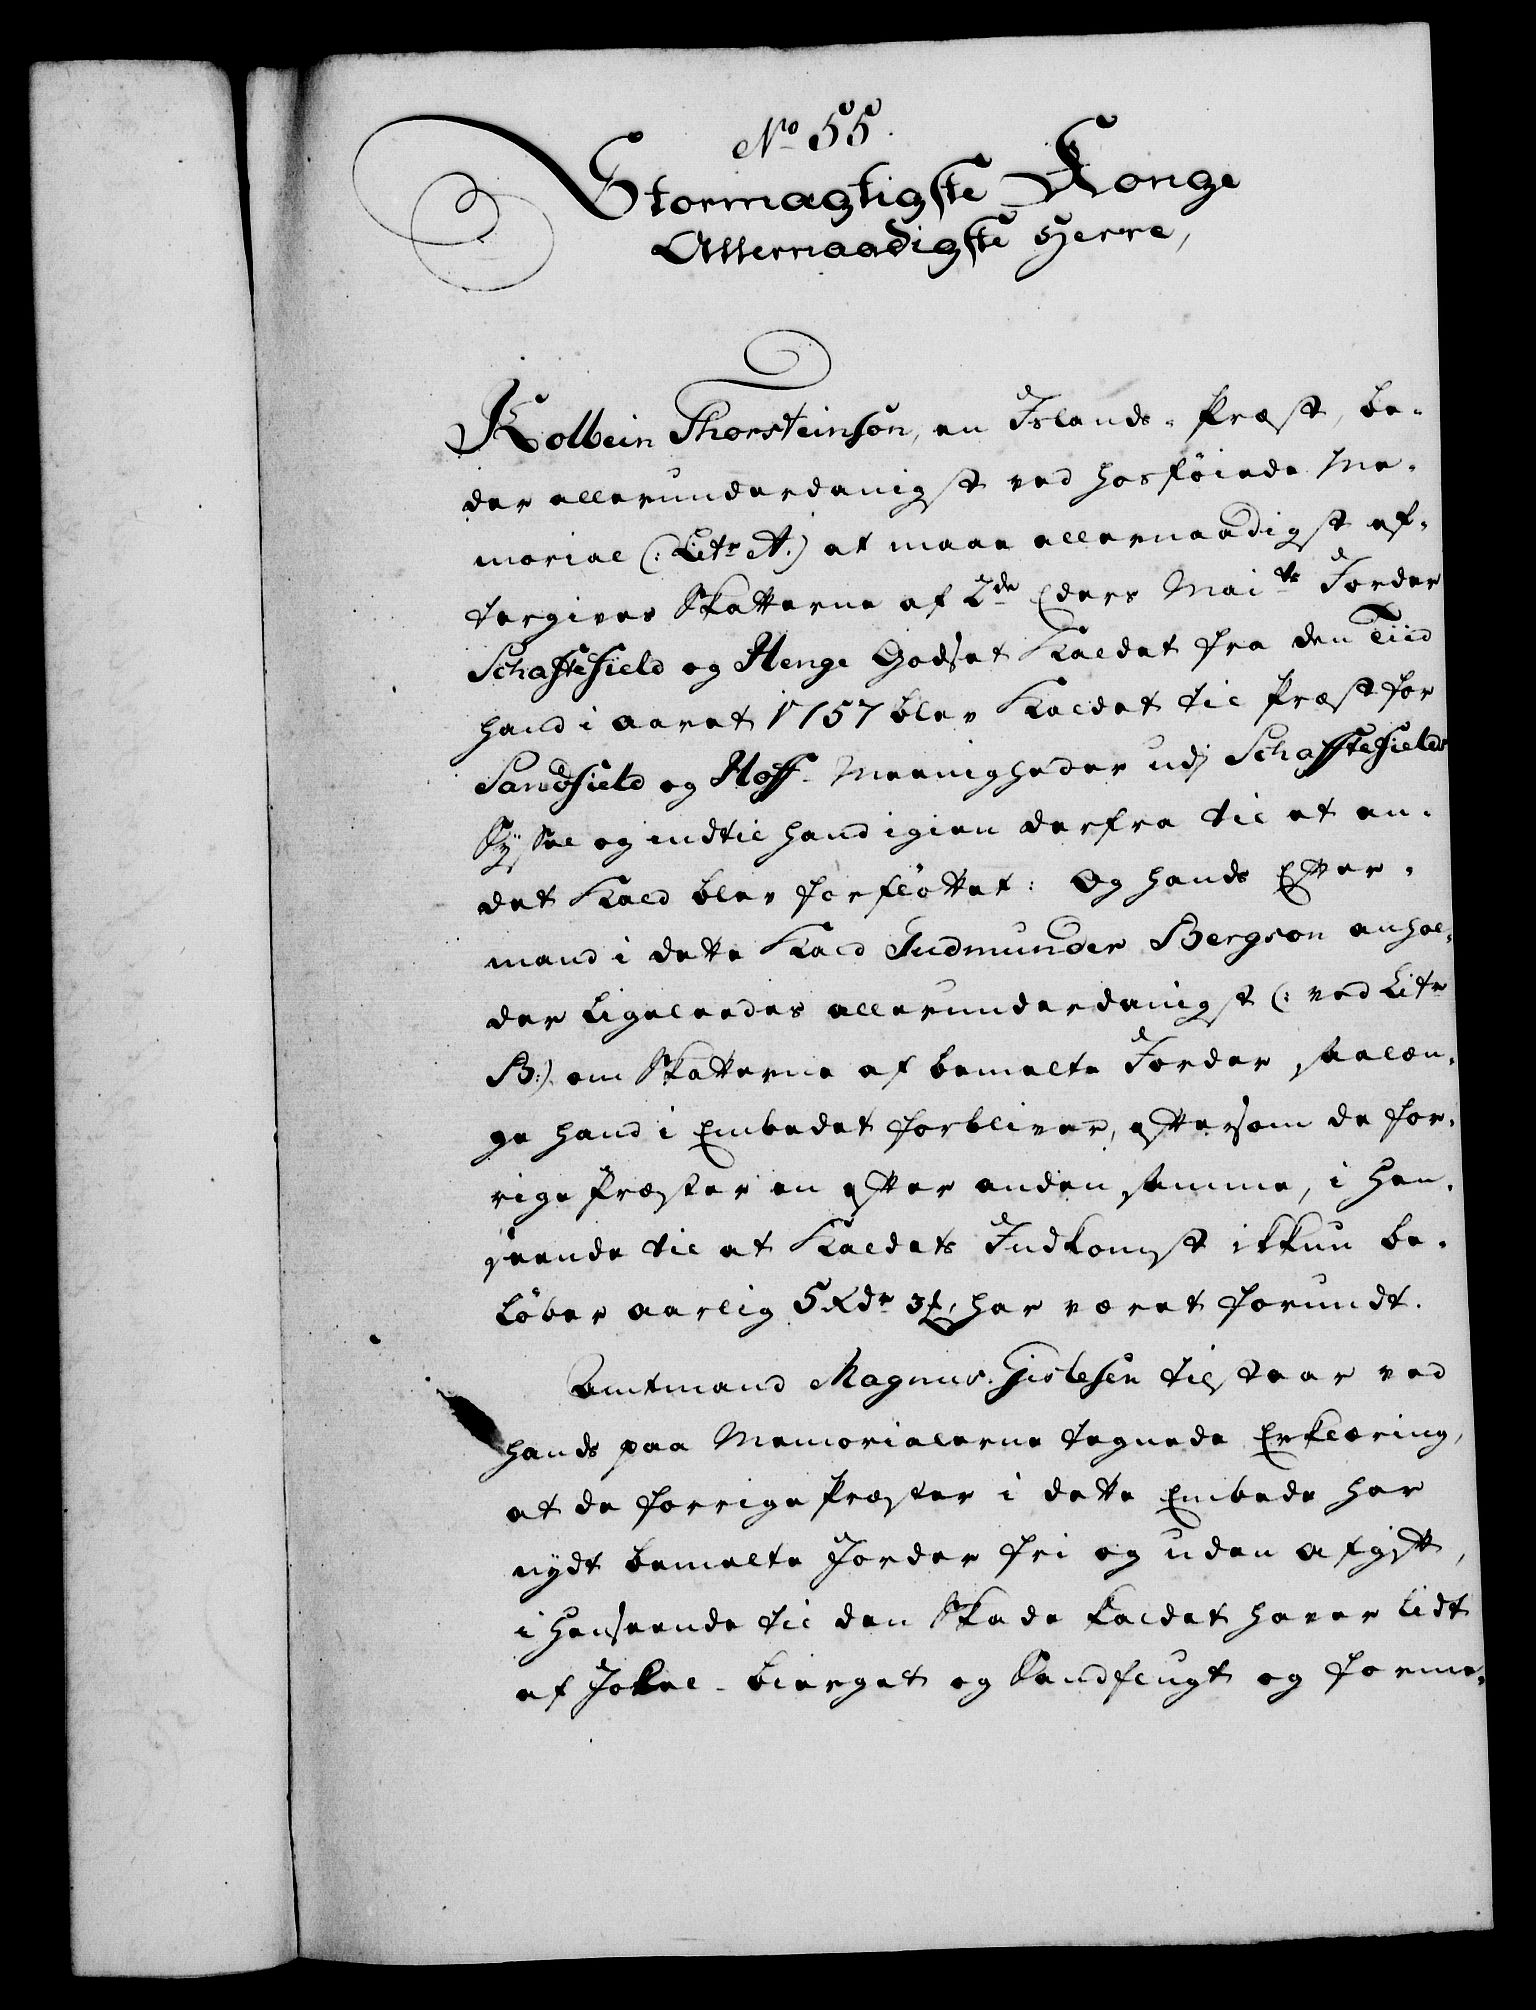 No 55.
Stormægtigste Konge
Allernaadigste Herre,
Kolbein Thorsteinson, en Islands-Præst, be-
der allerunderdanigst ved hosföiede Me-
morial (: Litr A.) at maae allernaadigst ef-
tergives Skatterne af 2de Eders Maits Jorder
Schaftefield og Henge Godset kaldet fra den Tiid
hand i aaret 1757 blev kaldet til Præst for
Sandfield og Hoff-Meenigheder udj Schaftefields
Syssel og indtil hand igien derfra til et an-
det Kald blev forflöttet: Og hands Efter-
mand i dette Kald Gudmunder Bergson anhol-
der ligeleedes allerunderdanigst (: ved Litr
B:) om Skatterne af bemelte Jorder saalæn-
ge hand i Embedet forbliver, eftersom de for-
rige Præster en efter anden samme, i Hen-
seende til at Kaldets Indkomst ikkun be-
löber aarlig 5 Rdr 3 ß, har været forundt.
Amtmand Magnus Gislesen tilstaar ved
hands paa Memorialerne tegnede Erklæring,
at de forrige Præster i dette Embede har
nydt bemelte Jorder fri og uden afgift,
i Henseende til den Skade kaldet haver lidt
af Jokel-bierget og Sandflugt og forme-